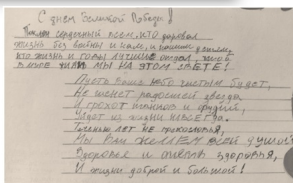 С днем Великой Победы!
Поклон сердечный всем, кто даровал
жизнь без войны и нам, и нашим детям,
кто жизнь и годы лучшие отдал, чтоб
в мире жили мы на этом свете!
Пусть ваше небо чистым будет,
Не меркнет радостей звезда,
И грохот танков и орудий,
Уйдет из жизни навсегда.
лет не прекословья,
Мы вам желаем всей душой
Здоровья и опять здоровья,
И жизни доброй и большой!